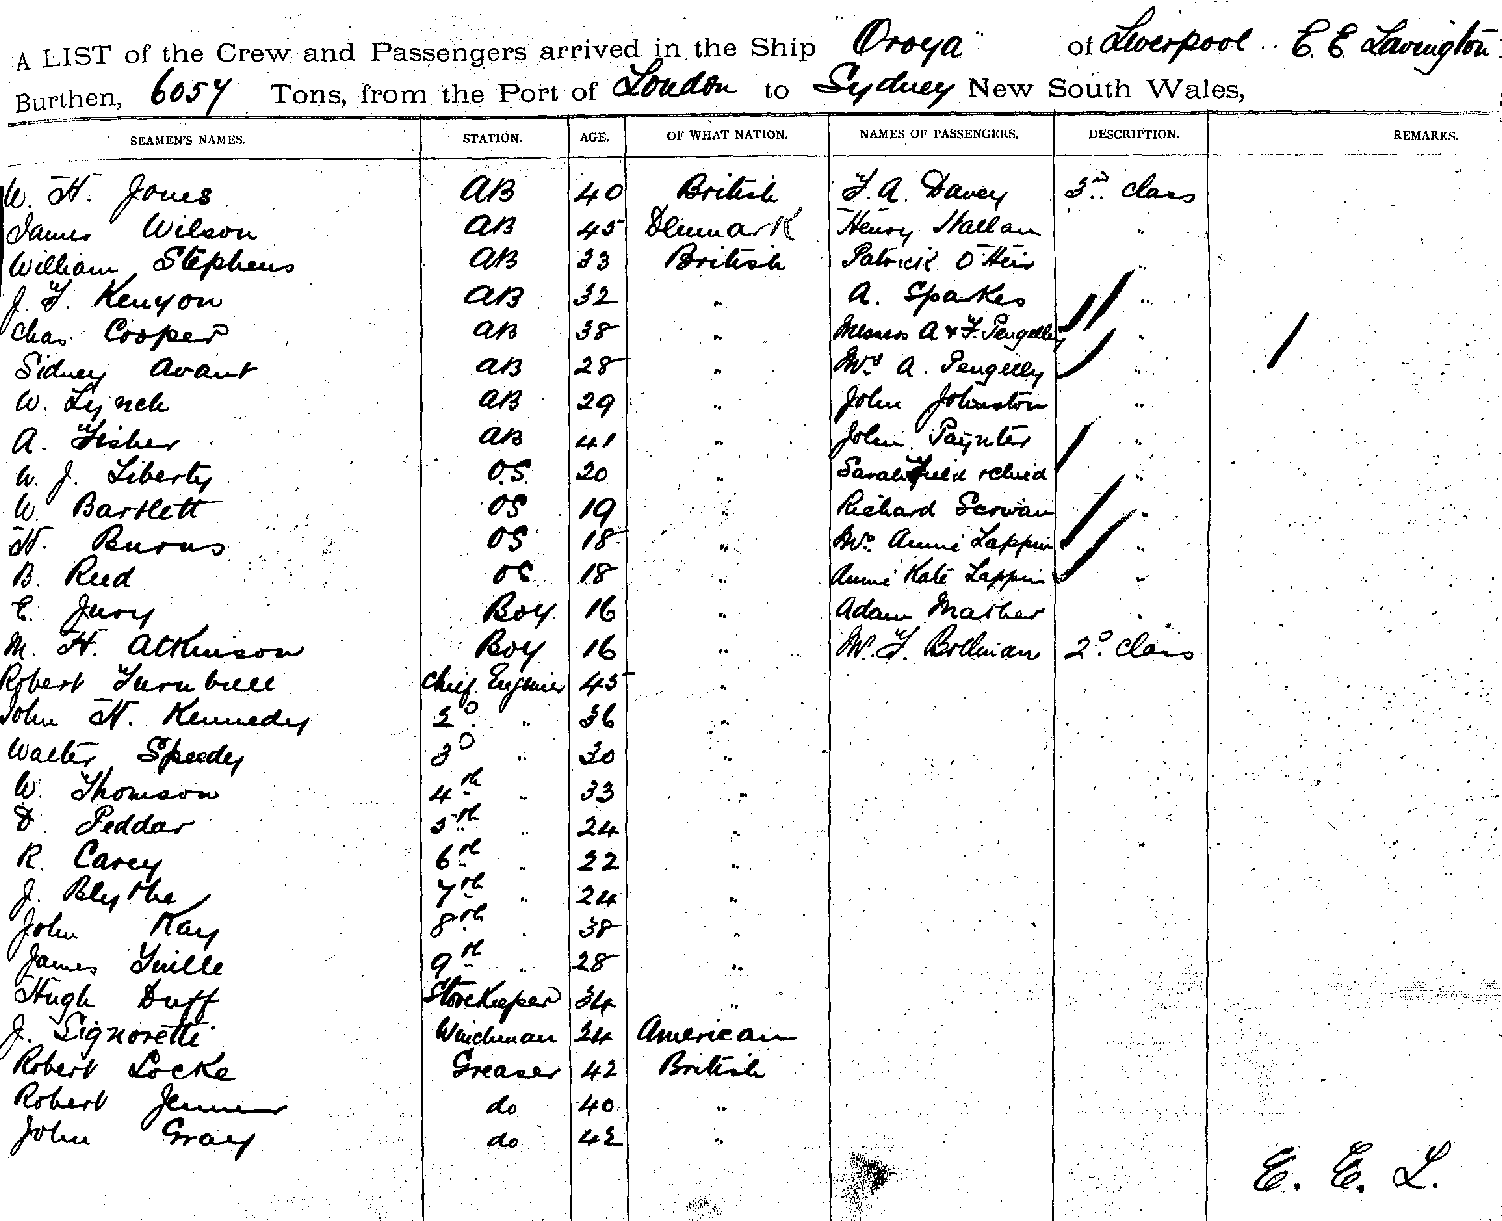 A LIST of the Crew and Passengers arrived in the Ship "Oroya" of Liverpool E. E. Lavington
Burthen, 6057 Tons, from the Port of London to Sydney New South Wales,
SEAMEN'S NAMES. STATION. AGE. OF WHAT NATION. NAMES OF PASSENGERS. DESCRIPTION. REMARKS.
W. H. Jones AB 40 British F. A. Davey 3rd class
James Wilson AB 45 Denmark Henry Hallan "
William Stephens AB 33 British Patrick O'Heir "
J. F. Kenyon AB 32 " A. Sparkes "
Chas. Cooper AB 38 " Messrs A & F. Pengelley "
Sidney Avant AB 28 " Mrs A. Pengelly "
W. Lynch AB 29 " John Johnston "
A. Fisher AB 41 " John Paynter "
W. J. Liberty O.S. 20 " Sarah Field & child "
W. Bartlett OS 19 " Richard "
H. Burns OS 18 " Mrs Annie Lappin "
B. Reed OS 18 " Annie Kate Lappin "
E. Jury Boy 16 " Adam Mather "
M. H. Atkinson Boy 16 " Mr. F. 2o class
Robert Turnbull Chief Engineer 45 "
John H. Kennedy 2o " 36 "
Walter Speedy 3o " 30 "
W. Thomson 4th " 33 "
D. Peddar 5th " 24 "
R. Carey 6th " 22 "
J. Blythe 7th " 24 "
John Kay 8th " 38 "
James 9th " 28 "
Hugh Duff Storekeeper 34 "
J. Signoretti Winchman 24 American
Robert Locke Greaser 42 British
Robert Jenner do 40 "
John Gray do 42 "
E. E. L.